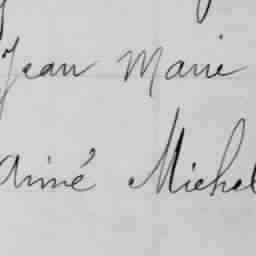 Jean Marie
Aimé Michel